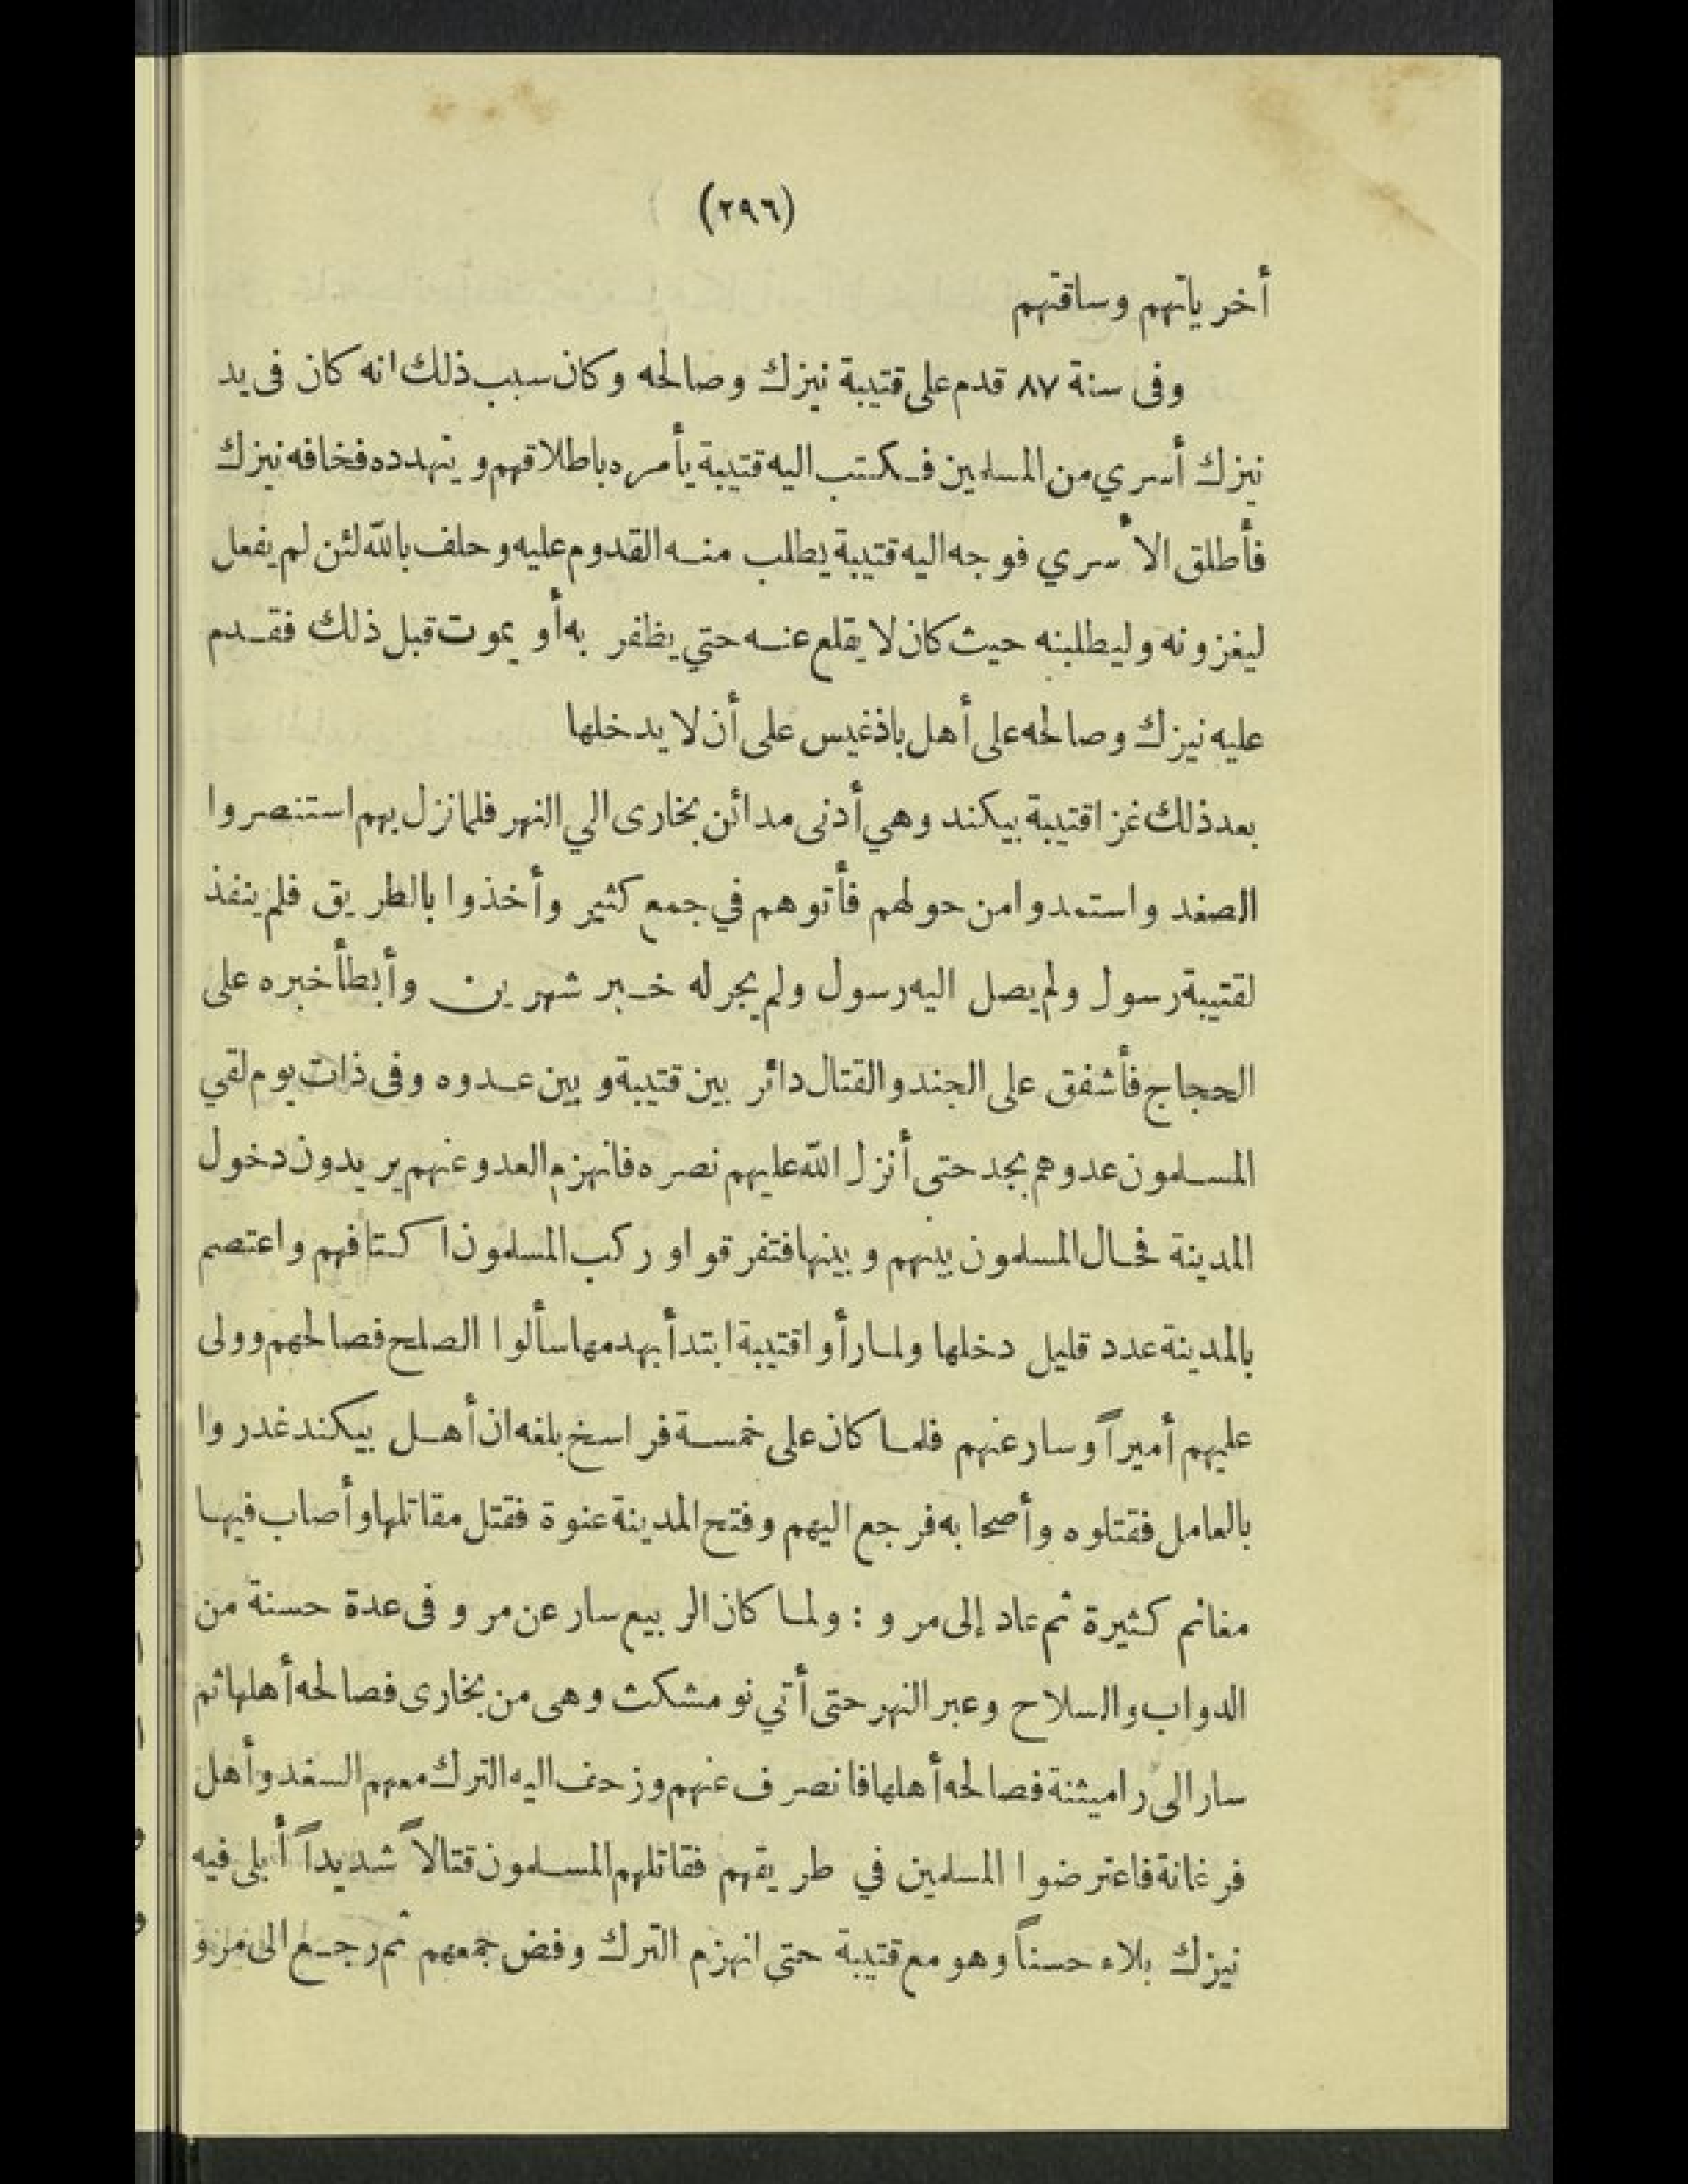 (٢٩٦)
أخرياتهم وساقتهم
وفى سنة ٨٧ قدم على قتيبة نيزك وصالحه وكان سبب ذلك انه كان فى يد
نيزك أسري من المسلمين فكتب اليه قتيبة يأمره باطلاقهم ويتهدده فخافه نيزك
فأطلق الأسري فوجه اليه قتيبة يطلب منه القدوم عليه وحلف بالله لئن لم يفعل
ليغزونه وليطلبنه حيث كان لا يقلع عنه حتي يظفر به أو يموت قبل ذلك فقدم
عليه نيزك وصالحه على أهل باذغيس على أن لا يدخلها
بعد ذلك غزا قتيبة بيكند وهي أدنى مدائن بخارى الي النهر فلما نزل بهم استنصروا
الصغد واستمدوا من حولهم فأتوهم في جمع كثير وأخذوا بالطريق فلم ينفذ
لقتيبة رسول ولم يصل اليه رسول ولم يجر له خبر شهرين وأبطأ خبره على
الحجاج فأشفق على الجند والقتال دائر بين قتيبة وبين عدوه وفى ذات يوم لقي
المسلمون عدوهم بجد حتى أنزل الله عليهم نصره فانهزم العدو عنهم يريدون دخول
المدينة فحال المسلمون بينهم وبينها فتفرقوا وركب المسلمون اكتافهم واعتصم
بالمدينة عدد قليل دخلها ولما رأوا قتيبة ابتدأ بهدمها سألوا الصلح فصالحهم وولى
عليهم أميراً وسار عنهم فلما كان على خمسة فراسخ بلغه ان أهل بيكند غدروا
بالعامل فقتلوه وأصحابه فرجع اليهم وفتح المدينة عنوة فقتل مقاتلها وأصاب فيها
مغانم كثيرة ثم عاد إلى مرو : ولما كان الربيع سار عن مرو فى عدة حسنة من
الدواب والسلاح وعبر النهر حتى أتي نومشكث وهى من بخارى فصالحه أهلها ثم
سار الى راميثنة فصالحه أهلها فانصرف عنهم وزحف اليه الترك معهم السغد وأهل
فرغانة فاعترضوا المسلمين في طريقهم فقاتلهم المسلمون قتالاً شديداً أبلى فيه
نيزك بلاء حسناً وهو مع قتيبة حتى انهزم الترك وفض جمعهم ثم رجع الى مرو